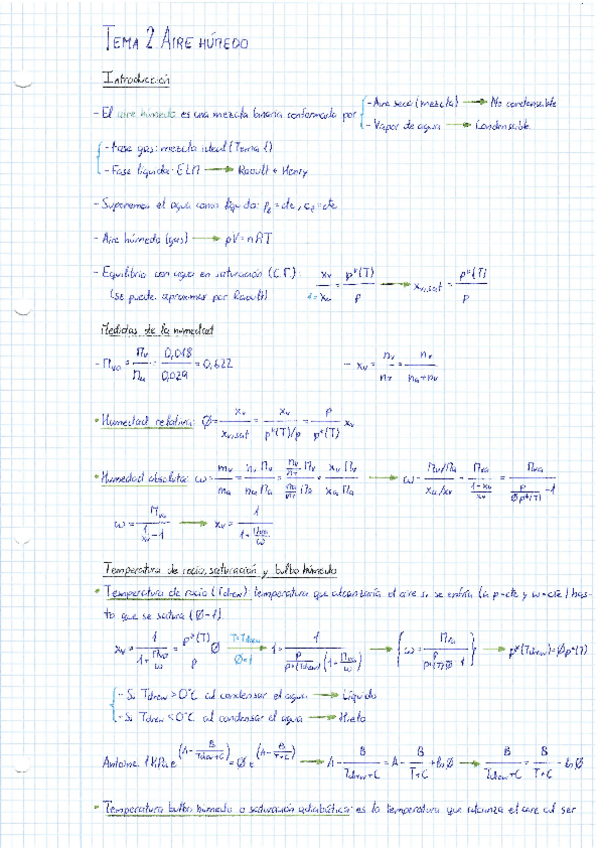 TEMA 2 AIRE HÚMEDO
Introducción
- El aire húmedo es una mezcla binaria conformada por { - Aire seco (mezcla) → No condensable
- Vapor de agua → Condensable
{ - Fase gas: mezcla ideal (Tema 1)
- Fase líquida: ELM → Raoult + Henry
- Suponemos el agua como líquido: ρ_l = cte, c_l = cte
- Aire húmedo (gas) → pV = nRT
- Equilibrio con agua en saturación (C.F.): x_v / x_a = p*(T) / p → x_v,sat = p*(T) / p
(se puede aproximar por Raoult)
Medidas de la humedad
- M_va = M_v / M_a = 0,018 / 0,029 = 0,622 - x_v = n_v / n_T = n_v / (n_a + n_v)
• Humedad relativa: Ø = x_v / x_v,sat = x_v / (p*(T)/p) = p / p*(T) x_v
• Humedad absoluta: ω = m_v / m_a = n_v M_v / (n_a M_a) = (n_v/n_T) M_v / ((n_a/n_T) M_a) = x_v M_v / (x_a M_a) → ω = (M_v/M_a) / (x_a/x_v) = M_va / ((1 - x_v)/x_v) = M_va / (p / (Ø p*(T)) - 1)
ω = M_va / (1/x_v - 1) → x_v = 1 / (1 + M_va/ω)
Temperatura de rocío, saturación y bulbo húmedo
• Temperatura de rocío (Tdew): temperatura que alcanzaría el aire si se enfría (a p=cte y ω=cte) has-
ta que se satura (Ø=1)
x_v = 1 / (1 + M_va/ω) = p*(T) / p Ø → T=Tdew Ø=1 → 1 = 1 / (p / p*(Tdew) (1 + M_va/ω)) → { ω = M_va / (p / (p*(T) Ø) - 1) } → p*(Tdew) = Ø p*(T)
{ - Si Tdew > 0°C al condensar el agua → Líquido
- Si Tdew < 0°C al condensar el agua → Hielo
Antoine: 1 KPa e^(A - B/(Tdew+C)) = Ø e^(A - B/(T+C)) → A - B/(Tdew+C) = A - B/(T+C) + ln Ø → B/(Tdew+C) = B/(T+C) - ln Ø
• Temperatura bulbo húmedo o saturación adiabática: es la temperatura que alcanza el aire al ser